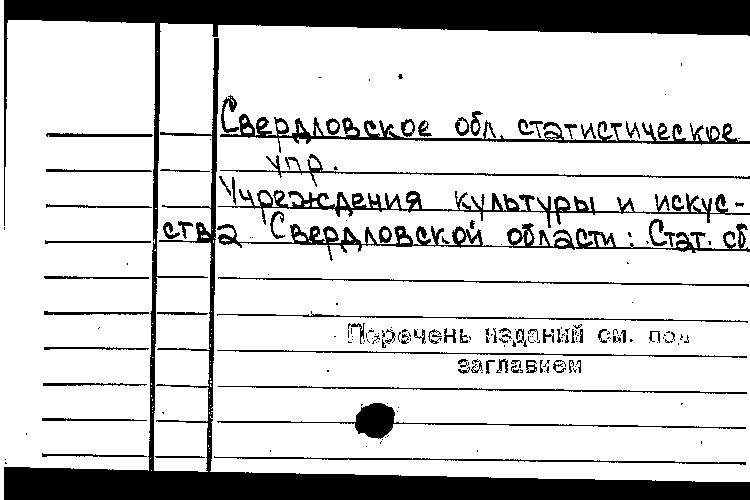 Свердловское обл. статистическое
упр.
Учреждения культуры и искус-
ства Свердловской области: Стат. сб
Перечень изданий см. под
заглавием